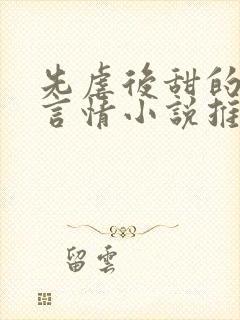 先虐後甜的
言情小說推
留雲